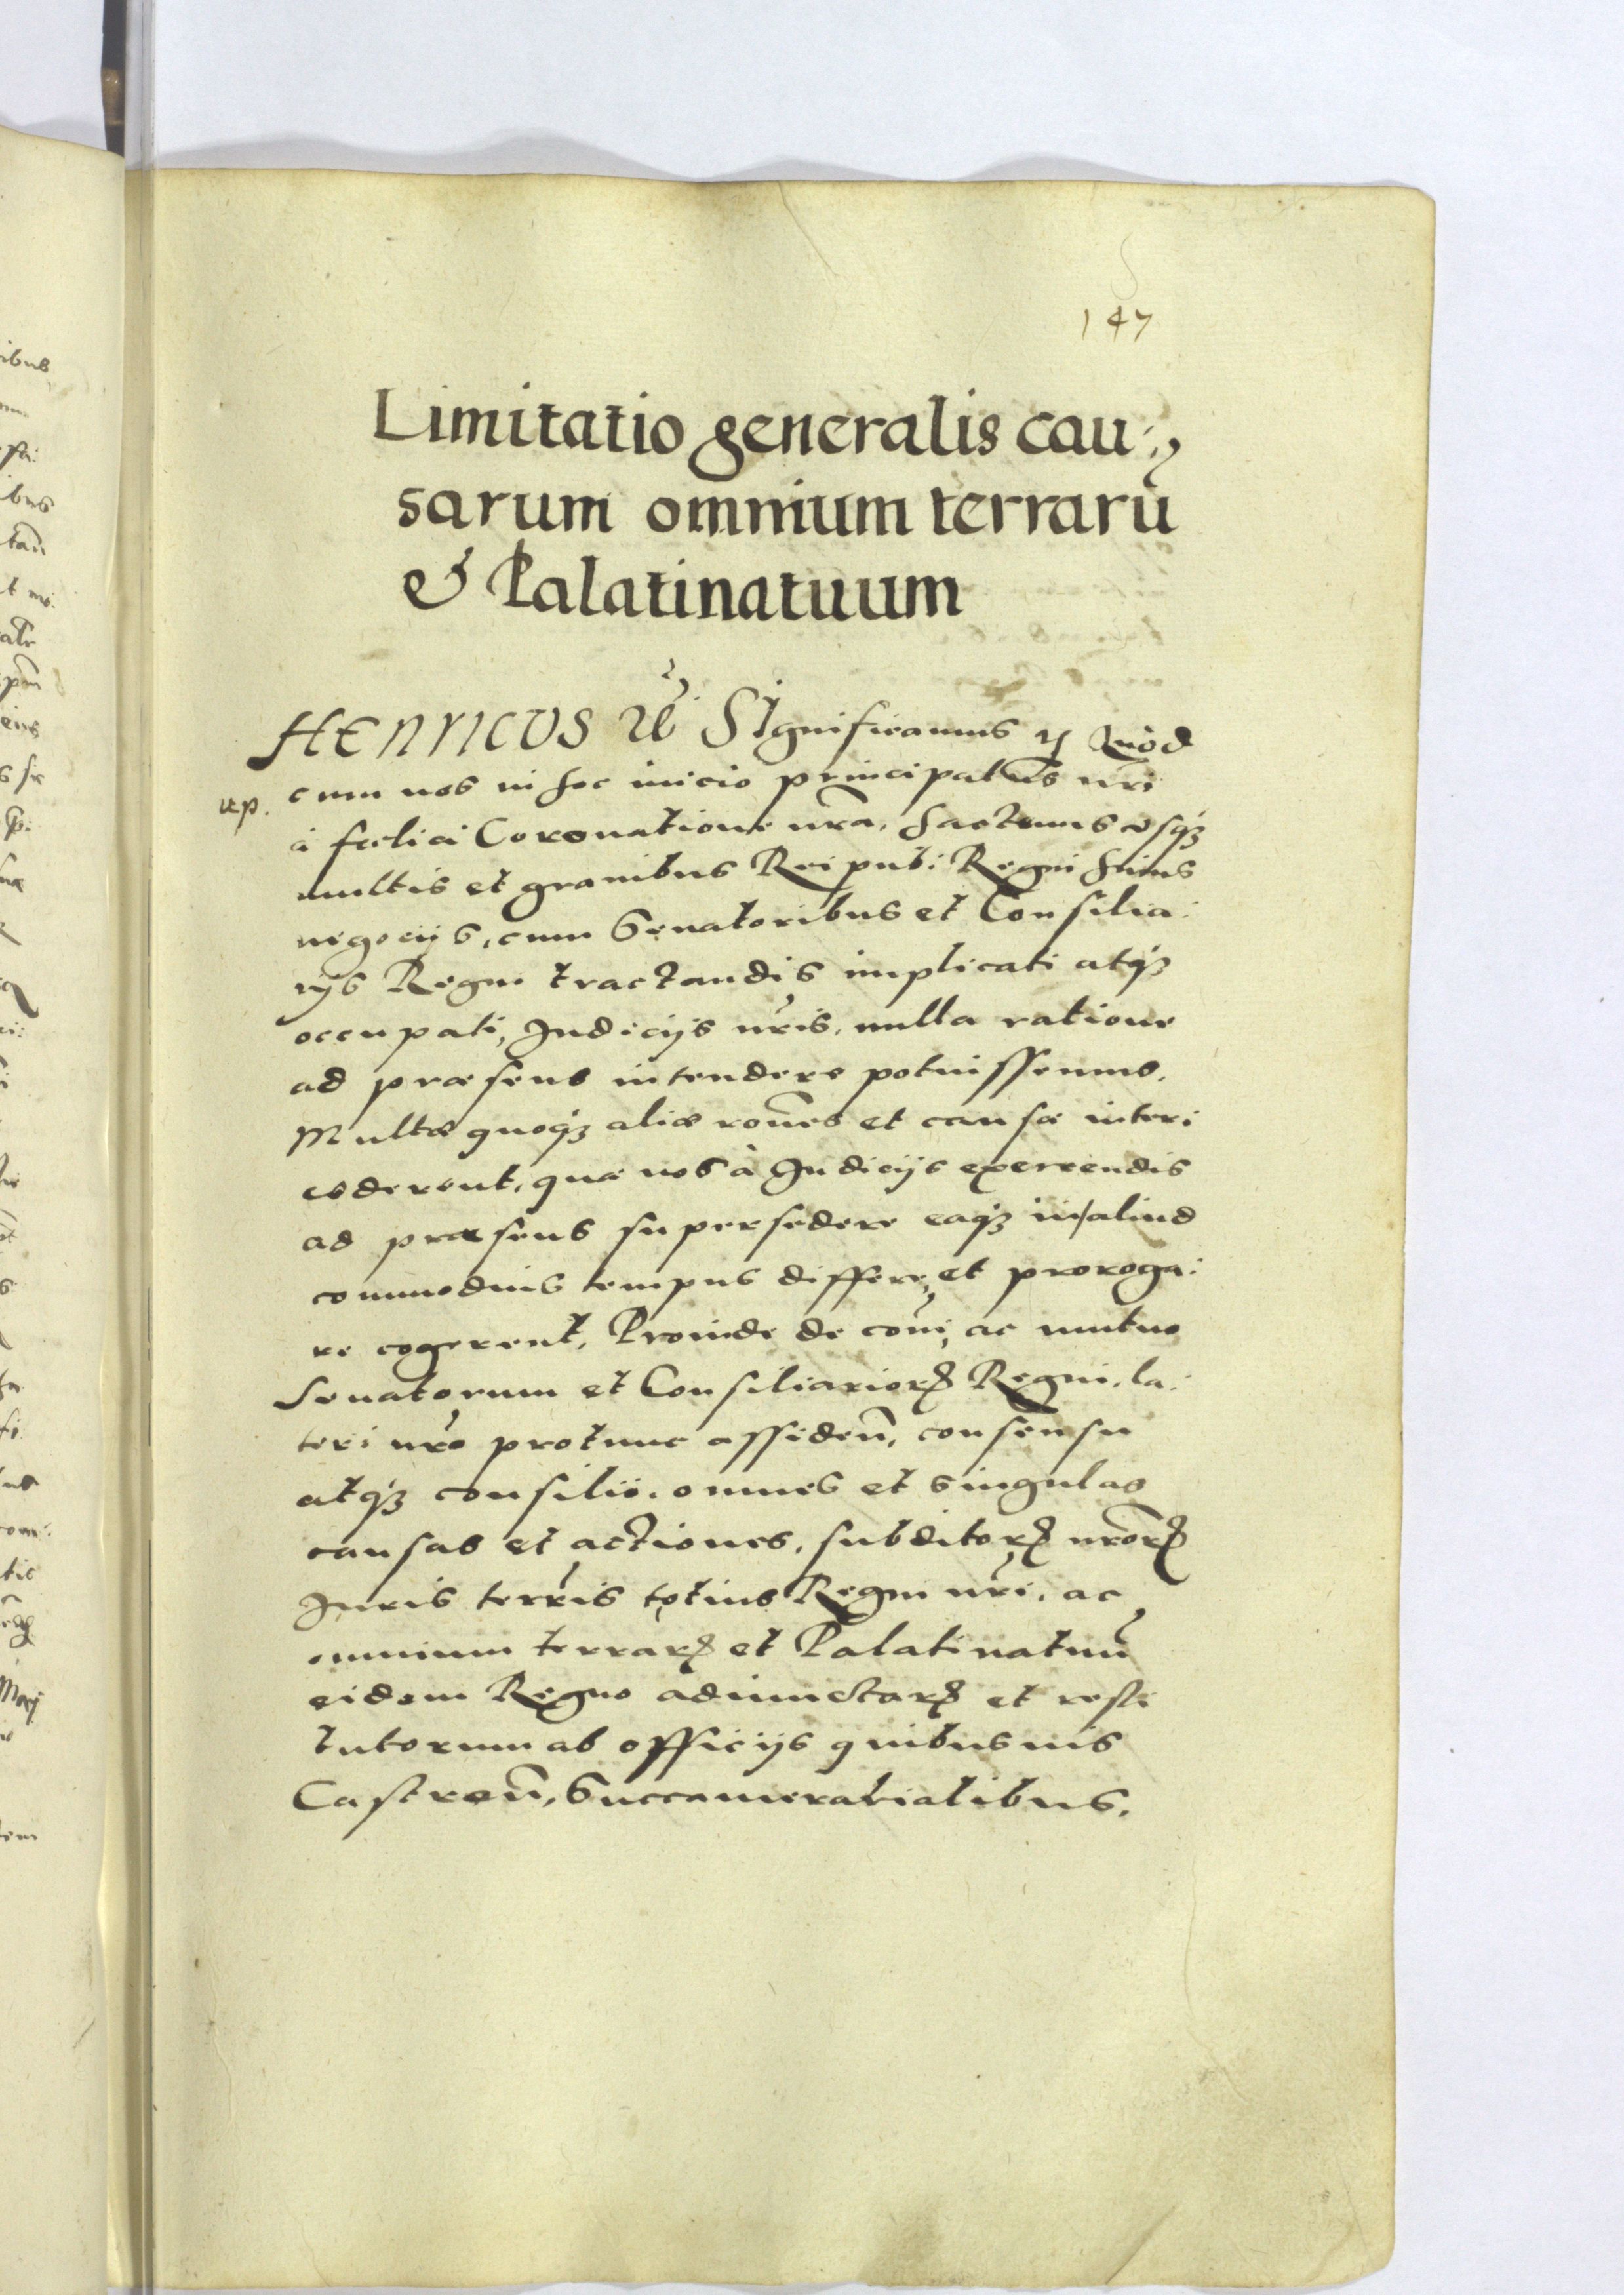 147
Limitatio generalis cau:
sarum omnium terrarū
& Palatinatuum
HENRICUS Significamus Quod
cum nos in hoc inicio principatus nri
à fælici Coronatione nra, hactenus usq3
multis et gravibus Reipub: Regni huius
negocijs, cum Senatoribus et Consilia:
rijs Regni tractandis implicati atq3
occupati, Judicijs nris, nulla ratione
ad præsens intendere potuissemus,
Multæ quoq3 aliæ rones et causæ interi
ederent, quæ nos à Judicijs exercendis
ad præsens supersedere eaq3 in aliud
commodius tempus differre, et proroga:
re cogerent, Proinde de coi, ac mutuo
Senatorum et Consiliarior Regni, la:
teri nro protunc assideñ, consensu
atq3 consilio, omnes et singulas
causas et actiones, subditor nror
Juris terris totius Regni nri, ac
omnium terrar et Palatinatuū
eidem Regno adiunctar et resti
tutorum ab officijs quibusuis
Castreñ, Succamerarialibus,
ibus